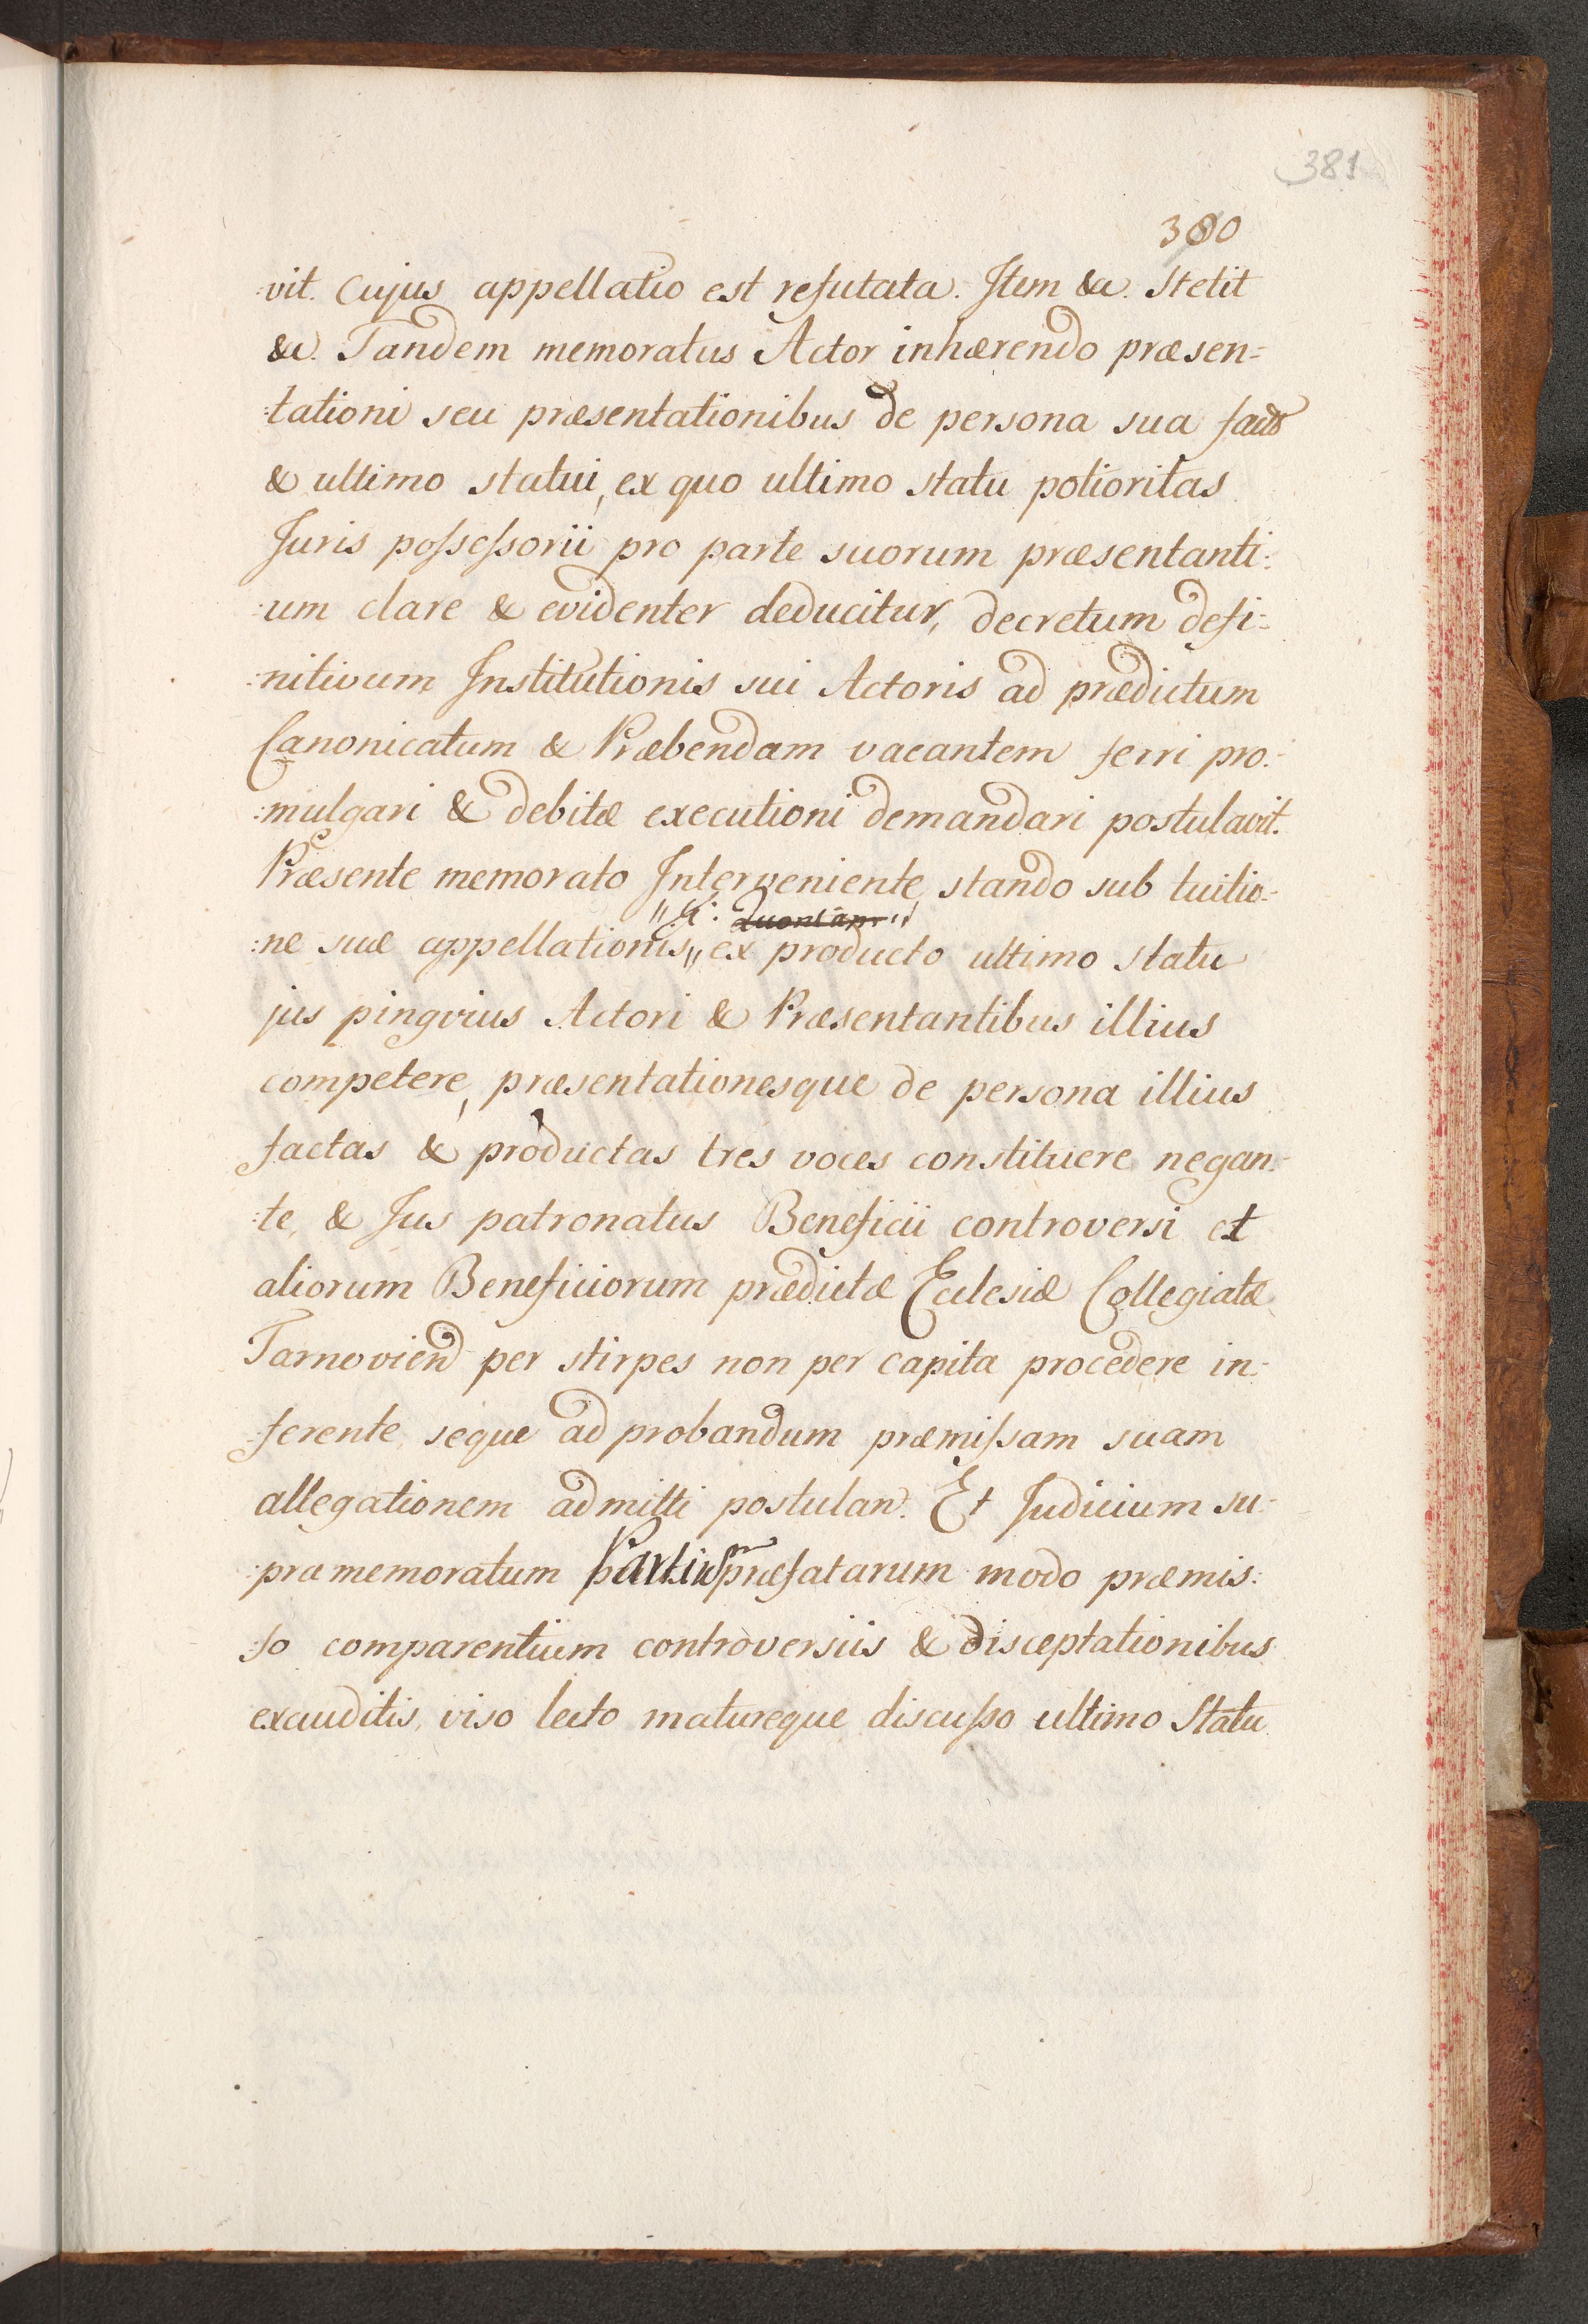 381
380
vit. Cujus appellatio est refutata. Item &a. Stetit
&a. Tandem memoratus Actor inhærendo præsen=
:tationi seu præsentationibus de persona sua
& ultimo statui, ex quo ultimo statu potioritas
Juris possessorii pro parte suorum præsentanti:
:um clare & evidenter deducitur, decretum defi:
:nitivum Institutionis sui Actoris ad prædictum
Canonicatum & Præbendam vacantem ferri pro:
:mulgari & debitæ executioni demandari postulavit.
Præsente memorato Interveniente, stando sub tuitio:
quoniam
:ne suæ appellationis,, ex producto ultimo statu
jus pingvius Actori & Præsentantibus illius
competere, præsentationesque de persona illius
factas & productas tres voces constituere negan:
:te, & Jus patronatus Beneficii controversi et
aliorum Beneficiorum prædictæ Ecclesiæ Collegiatæ
Tarnovien per stirpes non per capita procedere in:
:ferente, seque ad probandum præmissam suam
allegationem admitti postulan. Et Judicium su:
:pra memoratum præfatarum modo præmis:
:so comparentium controversiis & disceptationibus
exauditis, viso lecto matureque discusso ultimo Statu